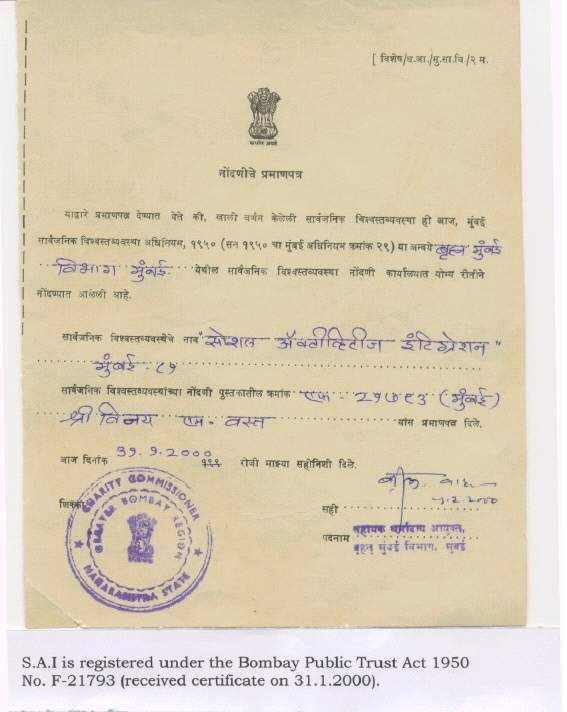 [ विशेष/ध.आ./मु.सा.वि./२ म.
सत्यमेव जयते
नोंदणीचे प्रमाणपत्र
याद्वारे प्रमाणपत्र देण्यात येते की, खाली वर्णन केलेली सार्वजनिक विश्वस्तव्यवस्था ही आज, मुंबई
सार्वजनिक विश्वस्तव्यवस्था अधिनियम, १९५० (सन १९५० चा मुंबई अधिनियम क्रमांक २९) या अन्वये बृहन्मुंबई
विभाग मुंबई. येथील सार्वजनिक विश्वस्तव्यवस्था नोंदणी कार्यालयात योग्य रीतीने
नोंदण्यात आलेली आहे.
सार्वजनिक विश्वस्तव्यवस्थेचे नाव "सोशल ॲक्टीव्हिटीज इंटिग्रेशन"
मुंबई-
सार्वजनिक विश्वस्तव्यवस्थांच्या नोंदणी पुस्तकातील क्रमांक एफ - २१७९३ (मुंबई)
श्री विनय एम. वस्त यांस प्रमाणपत्र दिले.
आज दिनांक 31.1.2000 रोजी माझ्या सहीनिशी दिले.
शिक्का
CHARITY COMMISSIONER
GREATER BOMBAY REGION
MAHARASHTRA STATE
सही
पदनाम सहायक धर्मादाय आयुक्त,
बृहन मुंबई विभाग, मुंबई
S.A.I is registered under the Bombay Public Trust Act 1950
No. F-21793 (received certificate on 31.1.2000).